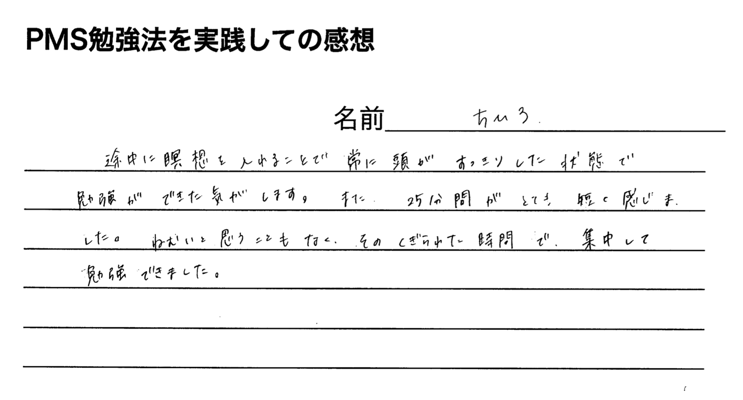 PMS勉強法を実践しての感想
名前 ちひろ.
途中に瞑想を入れることで常に頭がすっきりした状態で
勉強ができた気がします。また 25分間がとても短く感じま
した。ねむいと思うこともなく、そのくぎられた時間で、集中して
勉強できました。